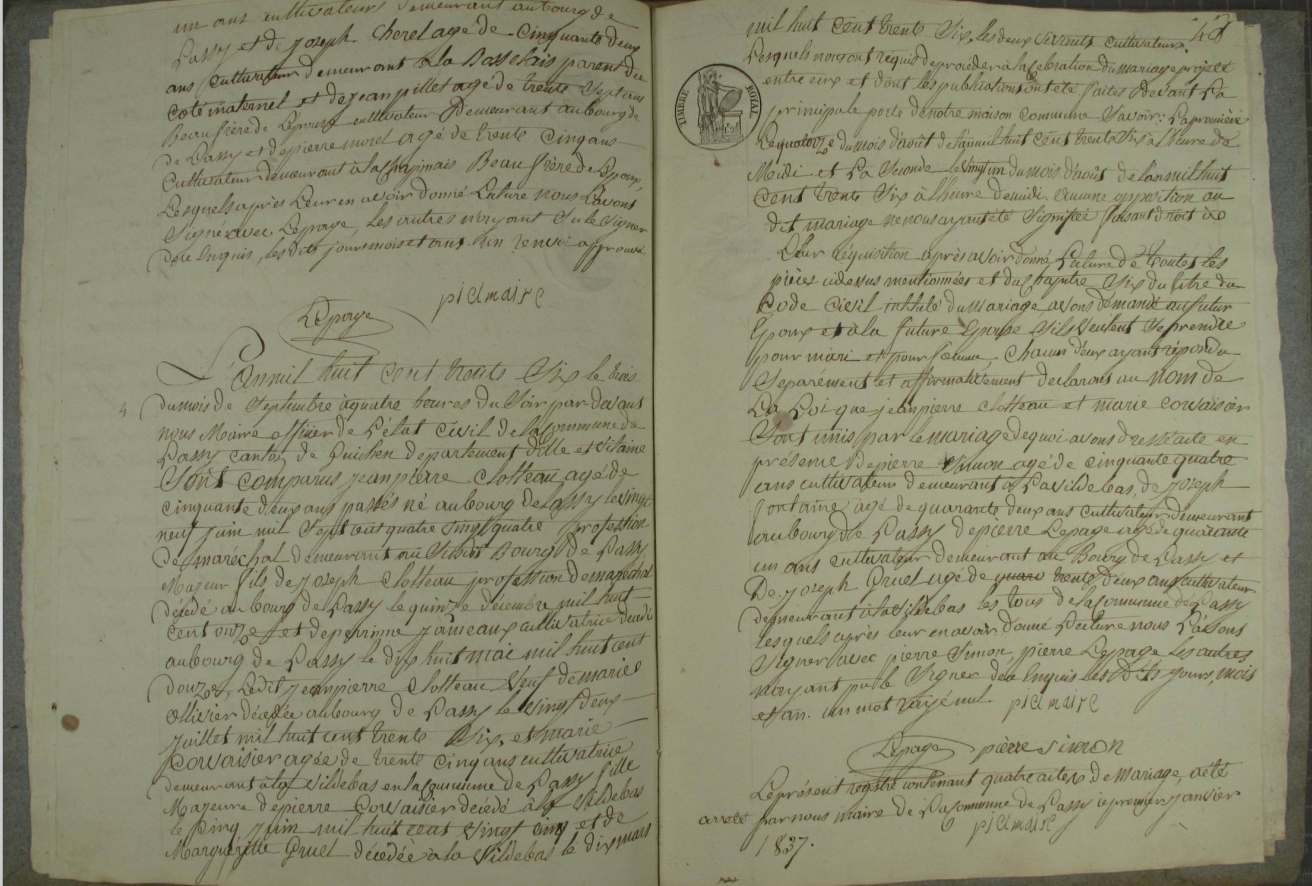 un ans cultivateurs demeurant au bourg de
Lassy et de joseph Cherel agé de cinquante deux
ans cultivateur demeurant à la Basselais parens du
coté maternel et de jean pillet agé de trente sept ans
Beau frère de L'epoux cultivateur Demeurant au bourg de
de Lassy et de pierre morel agé de trente cinq ans
Cultivateur demeurant à la Beau frère de Epoux,
Lesquels après Leur en avoir donné Lecture nous L'avons
Signé avec Lepage, Les autres n'ayant Su le Signer
De le Enquis, les dits jours mois et ans. un renvoi approuvé
piel maire
Lepage
L'An mil huit cent trente Six le trois
du mois de Septembre à quatre heures du Soir par devant
4
nous Maire officier de L'état Civil de la Commune de
Lassy canton de Guichen departement D'ille et Vilaine
Sont comparus jean pierre Clotteau agé de
cinquante deux ans passés né au bourg de Lassy le vingt
neuf juin mil Sept cent quatre vingt quatre profession
De maréchal demeurant au Bourg de Lassy
Majeur fils de joseph Clotteau profession de marechal
décédé au bourg de Lassy le quinze décembre mil huit
cent onze et de perrinne jameaux cultivatrice
au bourg de Lassy le dix huit mai mil huit cent
douze, Ledit jean pierre Clotteau Veuf de marie
Ollivier décédée au bourg de Lassy le vingt deux
juillet mil huit cent trente Six, et marie
Couvaisier agée de trente cinq ans cultivatrice
demeurant à la Vildebas en la Commune de Lassy fille
Majeure de pierre Couvaisier décédé à la Vildebas
le cinq juin mil huit cent vingt cinq et de
Marguerite Gruel décédée à la Vildebas le dix mars
mil huit cent trente Six, les deux vivants cultivateurs.
Lesquels nous ont requis de procéder à la célébration du mariage projeté
entre eux et dont les publications ont été faites devant La
TIMBRE ROYAL
principale porte de notre maison Commune Savoir: La première
Le quatorze du mois d'août de l'an mil huit Cent trente Six à L'heure de
Midi et La Seconde le vingt un du mois d'août de l'an mil huit
Cent trente Six à L'heure de midi. aucune opposition au
dit mariage ne nous ayant été Signifiée faisant droit à
Leur réquisition après avoir donné Lecture de toutes les
pièces cidessus mentionnées et du Chapitre Six du titre du
Code Civil intitulé du mariage avons demandé au futur
Epoux et à la future Epouse s'ils veulent se prendre
pour mari et pour femme, chacun d'eux ayant répondu
Séparément et affirmativement declarons au nom de
La Loi que jean pierre Clotteau et marie Couvaisier
Sont unis par le mariage de quoi avons dressé acte en
présence de pierre Simon agé de cinquante quatre
ans cultivateur demeurant à La vildebas, de joseph
fontaine agé de quarante deux ans cultivateur demeurant
au bourg de Lassy de pierre Lepage agé de quarante
un ans cultivateur demeurant au Bourg de Lassy et
De joseph Gruel agé de quara trente deux ans cultivateur
demeurant à la Vildebas les tous de la Commune de Lassy
lesquels après leur en avoir donné Lecture nous L'avons
Signer avec pierre Simon, pierre Lepage Les autres
n'ayant pu le Signer de le Enquis les Dits jours, mois
et an. un mot rayé nul. piel maire
Lepage pierre simon
Le présent registre contenant quatre actes de mariage, a été
arreté par nous maire de La Commune de Lassy le premier janvier
1837. piel maire